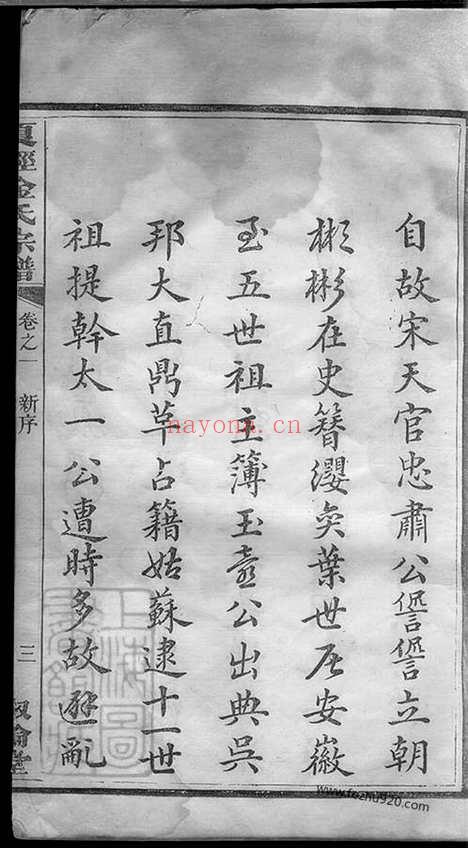 自故宋天官忠肅公諤諤立朝
彬彬在史簪纓奕葉世居安徽
至五世祖主簿玉壺公出典吳
邦大直鼎革占籍姑蘇逮十一世
祖提幹太一公遭時多故避亂
夏徑金氏宗譜
卷之一
新序
三
上海圖
nayona.cn
www.fozhu920.com